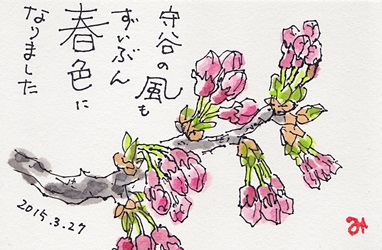 守谷の風も
ずいぶん
春色に
なりました
2015.3.27